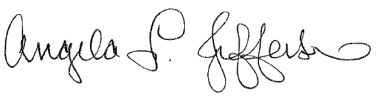 Angela L. Jefferson